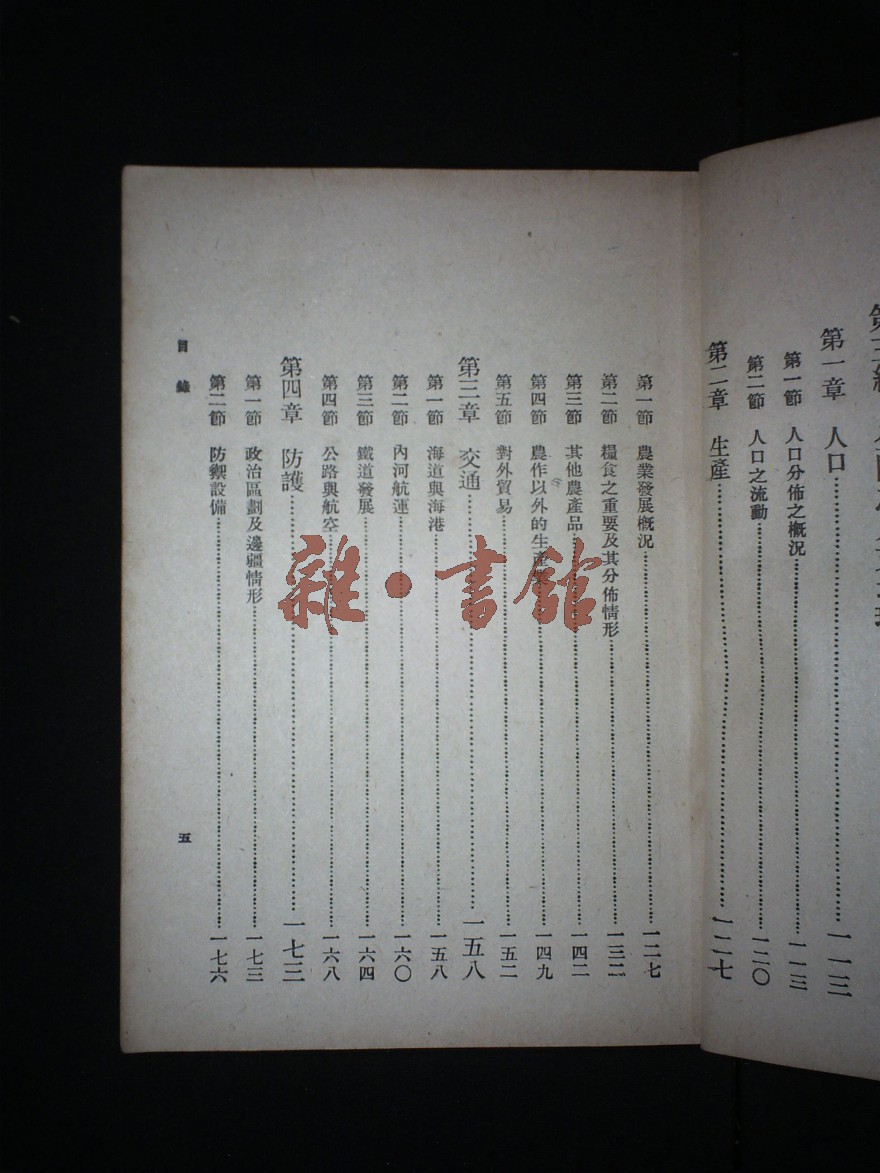 第一章 人口……一一三
第一節 人口分佈之概況……一一三
第二節 人口之流動……一二〇
第二章 生產……一二七
第一節 農業發展概況……一二七
第二節 糧食之重要及其分佈情形……一三二
第三節 其他農產品……一四二
第四節 農作以外的生產業……一四九
第五節 對外貿易……一五二
第三章 交通……一五八
第一節 海道與海港……一五八
第二節 內河航運……一六〇
第三節 鐵道發展……一六四
第四節 公路與航空……一六八
第四章 防護……一七三
第一節 政治區劃及邊疆情形……一七三
第二節 防禦設備……一七六
目錄
五
雜·書館